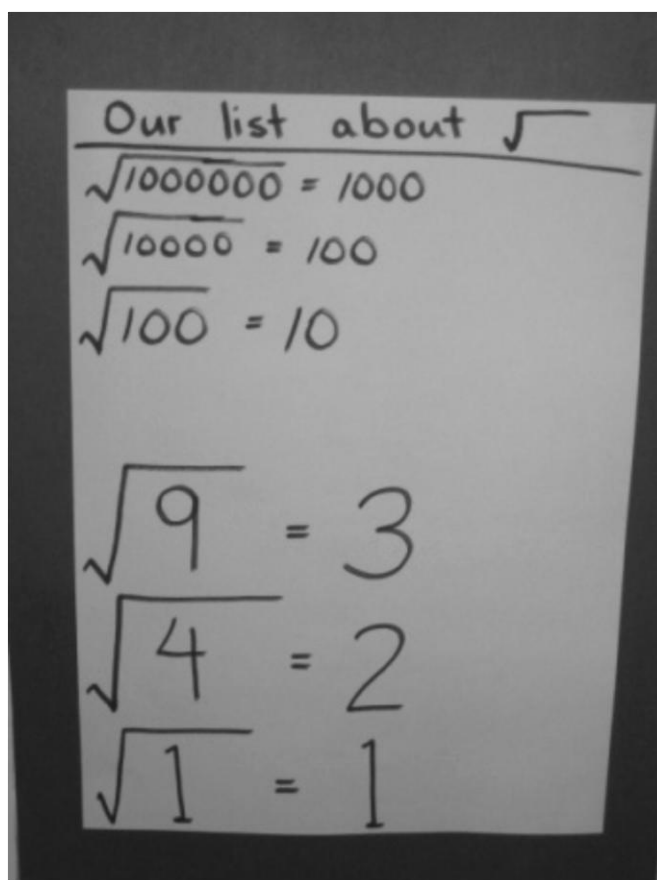 Our list about √
√1000000 = 1000
√10000 = 100
√100 = 10
√9 = 3
√4 = 2
√1 = 1